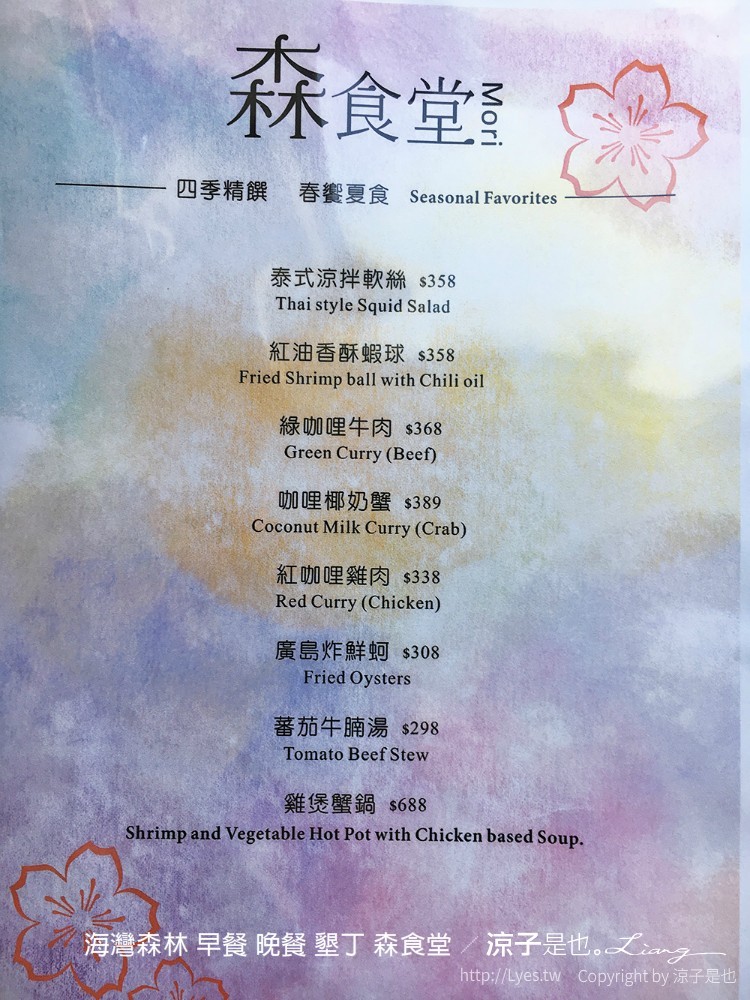 森食堂 Mori
四季精饌 春饗夏食 Seasonal Favorites
泰式涼拌軟絲 $358
Thai style Squid Salad
紅油香酥蝦球 $358
Fried Shrimp ball with Chili oil
綠咖哩牛肉 $368
Green Curry (Beef)
咖哩椰奶蟹 $389
Coconut Milk Curry (Crab)
紅咖哩雞肉 $338
Red Curry (Chicken)
廣島炸鮮蚵 $308
Fried Oysters
蕃茄牛腩湯 $298
Tomato Beef Stew
雞煲蟹鍋 $688
Shrimp and Vegetable Hot Pot with Chicken based Soup.
海灣森林 早餐 晚餐 墾丁 森食堂 / 涼子是也。Liang
http://Lyes.tw Copyright by 涼子是也